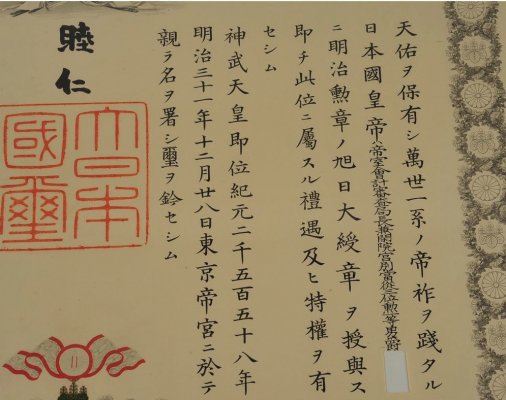 天佑ヲ保有シ萬世一系ノ帝祚ヲ踐タル
日本國皇帝ハ帝室會計審査局長兼閑院宮別當從三位勲等男爵
ニ明治勲章ノ旭日大綬章ヲ授與ス
即チ此位ニ屬スル禮遇及ヒ特權ヲ有
セシム
神武天皇即位紀元二千五百五十八年
明治三十一年十二月廿八日東京帝宮ニ於テ
親ラ名ヲ署シ璽ヲ鈐セシム
睦仁
大日本
國璽